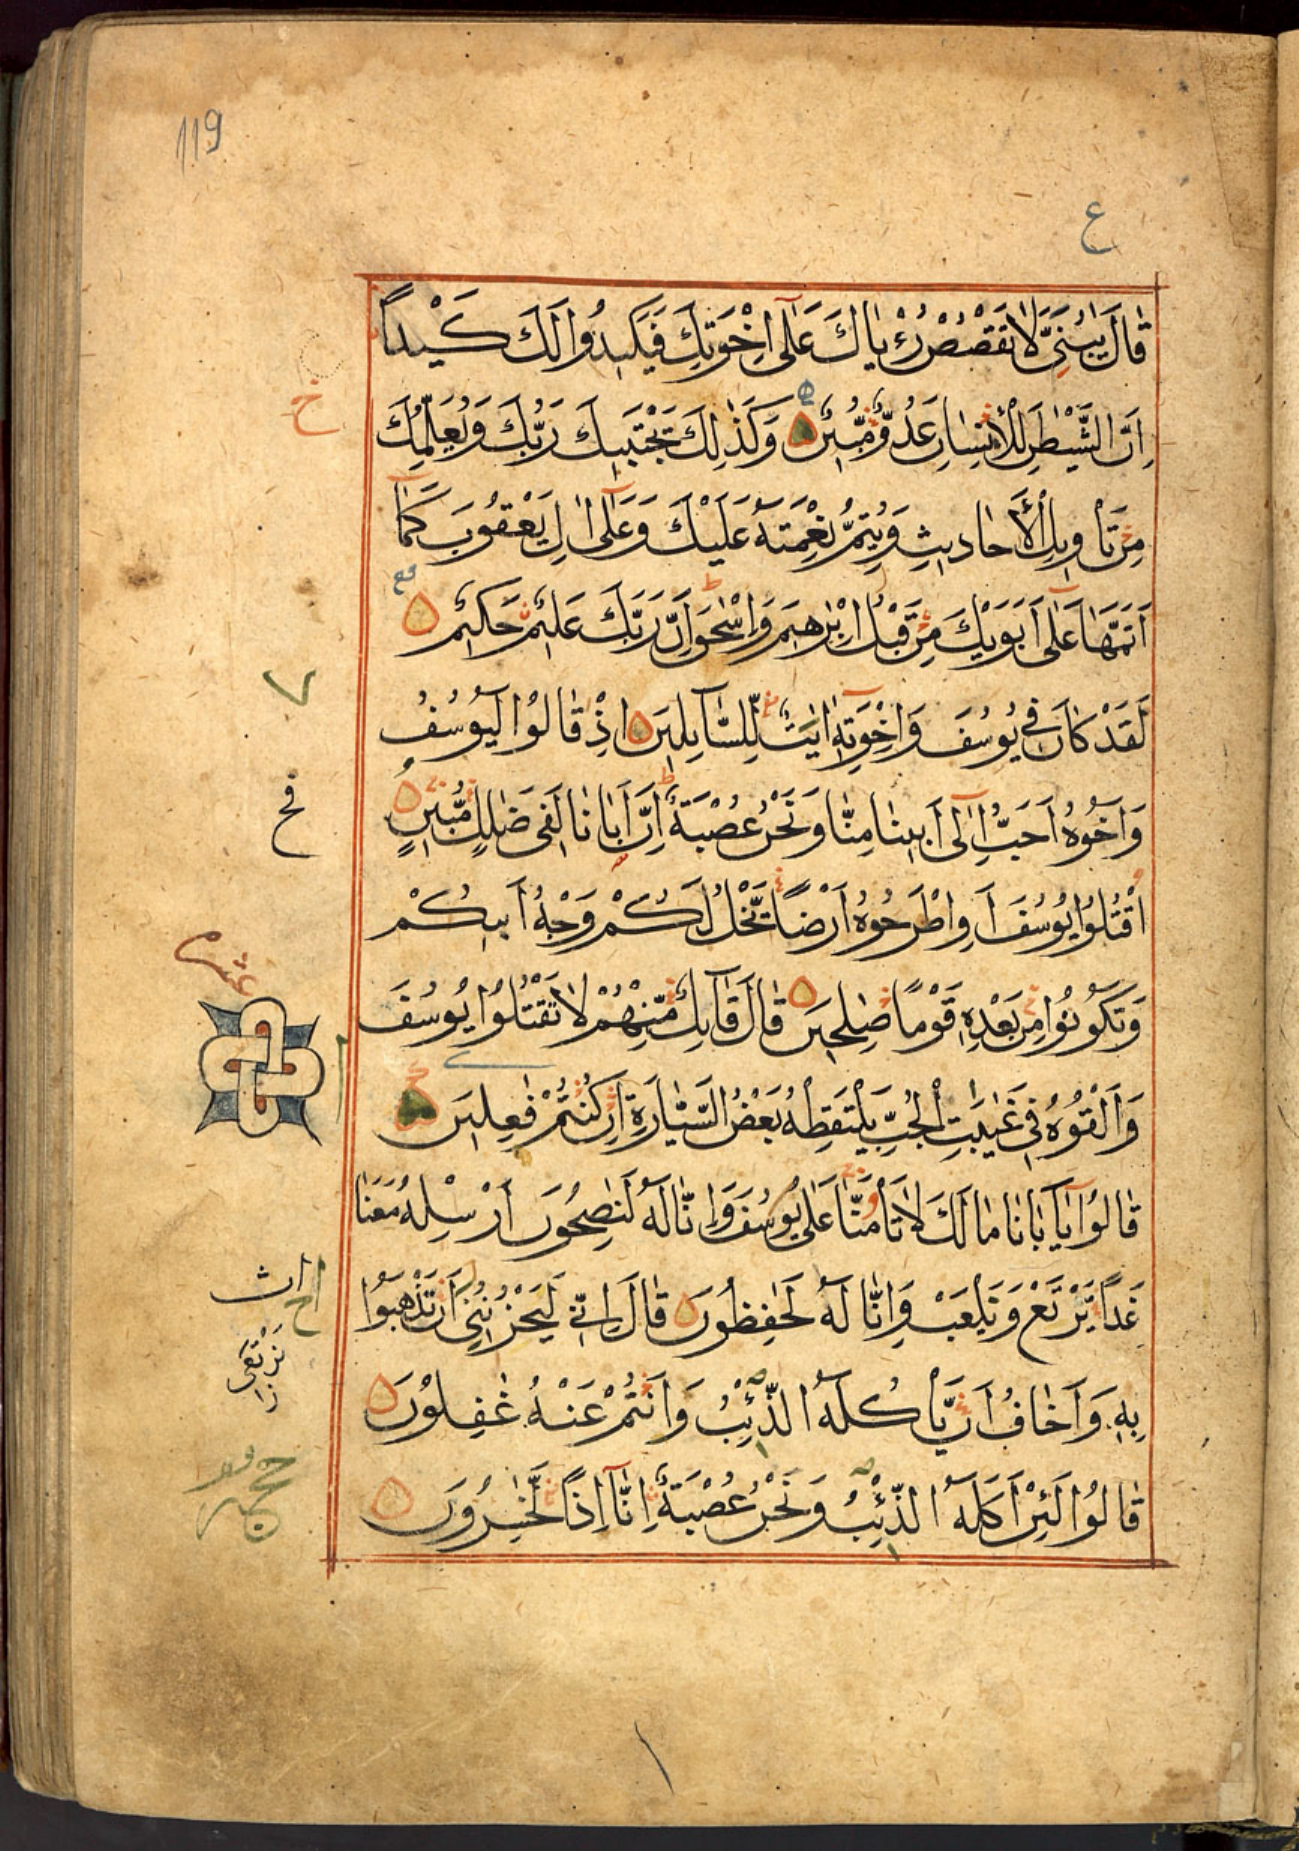 119
ع
قَالَ يٰبُنَيَّ لَا تَقْصُصْ رُءْيَاكَ عَلٰٓى اِخْوَتِكَ فَيَكِيدُوا لَكَ كَيْداً
خ
اِنَّ الشَّيْطٰنَ لِلْاِنْسَانِ عَدُوٌّ مُّبِينٌ وَكَذٰلِكَ يَجْتَبِيكَ رَبُّكَ وَيُعَلِّمُكَ
مِنْ تَاْوِيلِ الْاَحَادِيثِ وَيُتِمُّ نِعْمَتَهُ عَلَيْكَ وَعَلٰٓى اٰلِ يَعْقُوبَ كَمَٓا
اَتَمَّهَا عَلٰٓى اَبَوَيْكَ مِنْ قَبْلُ اِبْرٰهِيمَ وَاِسْحٰقَ اِنَّ رَبَّكَ عَلِيمٌ حَكِيمٌ
لَقَدْ كَانَ فِي يُوسُفَ وَاِخْوَتِهٖٓ اٰيٰتٌ لِّلسَّٓايِلِينَ اِذْ قَالُوْا لَيُوسُفُ
فخ
وَاَخُوهُ اَحَبُّ اِلٰٓى اَبِينَا مِنَّا وَنَحْنُ عُصْبَةٌ اِنَّ اَبَانَا لَفِى ضَلٰلٍ مُّبِينٍ
اقْتُلُوْا يُوسُفَ اَوِ اطْرَحُوهُ اَرْضاً يَّخْلُ لَكُمْ وَجْهُ اَبِيكُمْ
عشر
وَتَكُونُوْا مِنْ بَعْدِهٖ قَوْمًا صٰلِحِينَ قَالَ قَٓايِلٌ مِّنْهُمْ لَا تَقْتُلُوْا يُوسُفَ
وَاَلْقُوْهُ فِي غَيٰبَتِ الْجُبِّ يَلْتَقِطْهُ بَعْضُ السَّيَّارَةِ اِنْ كُنْتُمْ فٰعِلِينَ
قَالُوْا يَٓا اَبَانَا مَا لَكَ لَا تَاْمَنَّا عَلٰى يُوسُفَ وَاِنَّا لَهُ لَنٰصِحُونَ اَرْسِلْهُ مَعَنَا
غَداً يَّرْتَعْ وَيَلْعَبْ وَاِنَّا لَهُ لَحٰفِظُونَ قَالَ اِنِّي لَيَحْزُنُنِىٓ اَنْ تَذْهَبُوْا
بِهٖ وَاَخَافُ اَنْ يَّاْكُلَهُ الذِّئْبُ وَاَنْتُمْ عَنْهُ غٰفِلُوْنَ
قَالُوْا لَئِنْ اَكَلَهُ الذِّئْبُ وَنَحْنُ عُصْبَةٌ اِنَّٓا اِذاً لَّخٰسِرُوْنَ